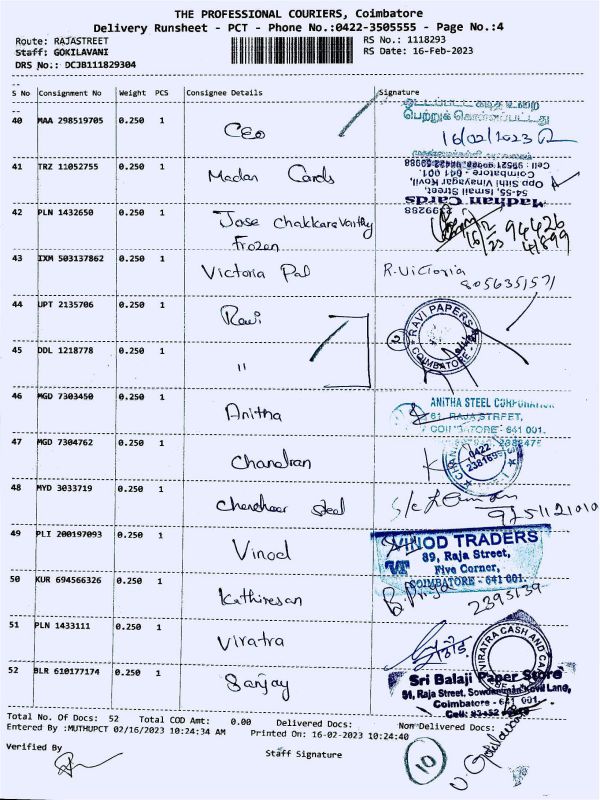 THE PROFESSIONAL COURIERS, Coimbatore
Delivery Runsheet - PCT - Phone No.:0422-3505555 - Page No.:4
Route: RAJASTREET
RS No.: 1118293
Staff: GOKILAVANI
RS Date: 16-Feb-2023
DRS No.: DCJB111829304
S No Consignment No Weight PCS Consignee Details Signature
40 MAA 298519705 0.250 1 CEO
பெற்றுக் கொள்ளப்பட்டது
16/02/2023
41 TRZ 11052755 0.250 1 Madan Cards
Madhan Cards
54-55, Ismail Street,
Opp Sithi Vinayagar Kovil,
Coimbatore - 641 001.
42 PLN 1432650 0.250 1 Jose Chakkaravarthy
Frozen
16/2/23
94426
41899
43 IXM 503137862 0.250 1 Victoria Pal R. Victoria
8056351571
44 UPT 2135706 0.250 1 Ravi
RAVI PAPERS
COIMBATORE
45 DDL 1218778 0.250 1 "
46 MGD 7303450 0.250 1 Anitha
ANITHA STEEL CORPORATION
61, RAJA STREET,
COIMBATORE - 641 001.
47 MGD 7304762 0.250 1 Chandran
0422
48 MYD 3033719 0.250 1 Chandraa Steel
9751121010
49 PLI 200197093 0.250 1 Vinod
VINOD TRADERS
89, Raja Street,
Five Corner,
COIMBATORE - 641 001.
VT
50 KUR 694566326 0.250 1 Kathiresan B. Priya
2395139
51 PLN 1433111 0.250 1 Viratra
VIRATRA CASH AND CA
52 BLR 610177174 0.250 1 Sanjay
Sri Balaji Paper Store
Raja Street,
Coimbatore - 641 001.
Total No. Of Docs: 52 Total COD Amt: 0.00 Delivered Docs: Non Delivered Docs:
Entered By :MUTHUPCT 02/16/2023 10:24:34 AM Printed On: 16-02-2023 10:24:40
Verified By
Staff Signature
10
V. Gokilavani